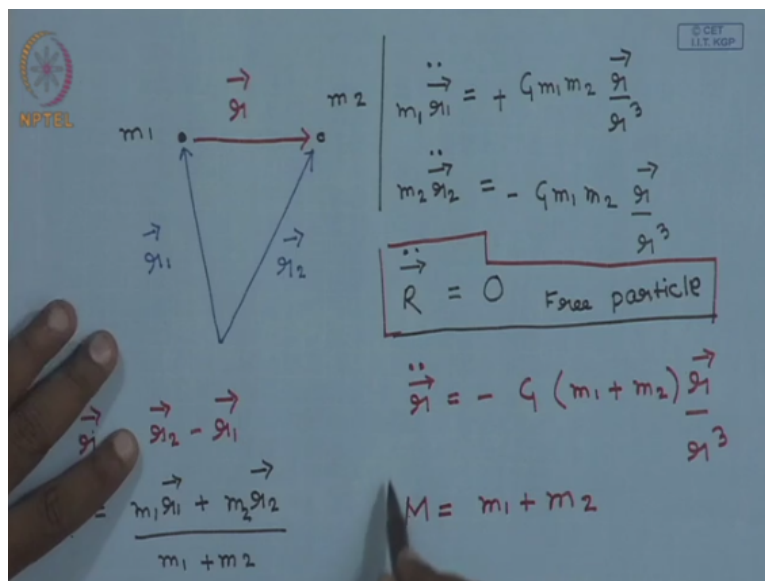 NPTEL
© CET
I.I.T. KGP
m1
r⃗
m2
r⃗1
r⃗2
m1 r⃗̈1 = + G m1 m2 r⃗/r³
m2 r⃗̈2 = - G m1 m2 r⃗/r³
R⃗̈ = 0 Free particle
r⃗̈ = - G (m1 + m2) r⃗/r³
r⃗ r⃗2 - r⃗1
= m1 r⃗1 + m2 r⃗2 / m1 + m2
M = m1 + m2